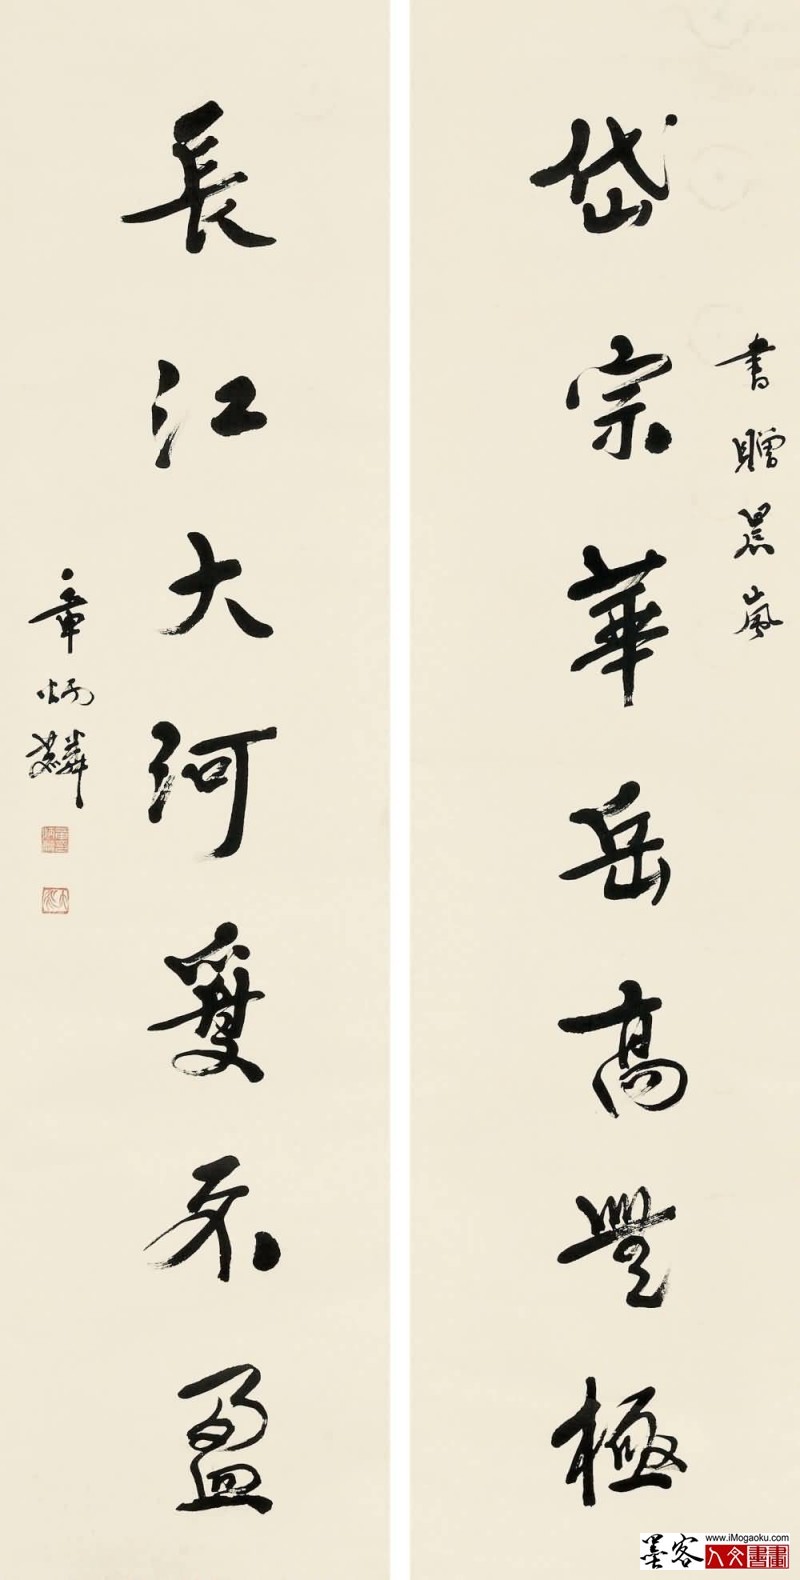 書贈景嵐
岱宗華岳高無極
長江大河受不盈
章炳麟
www.iMogaoku.com
墨客人文書畫